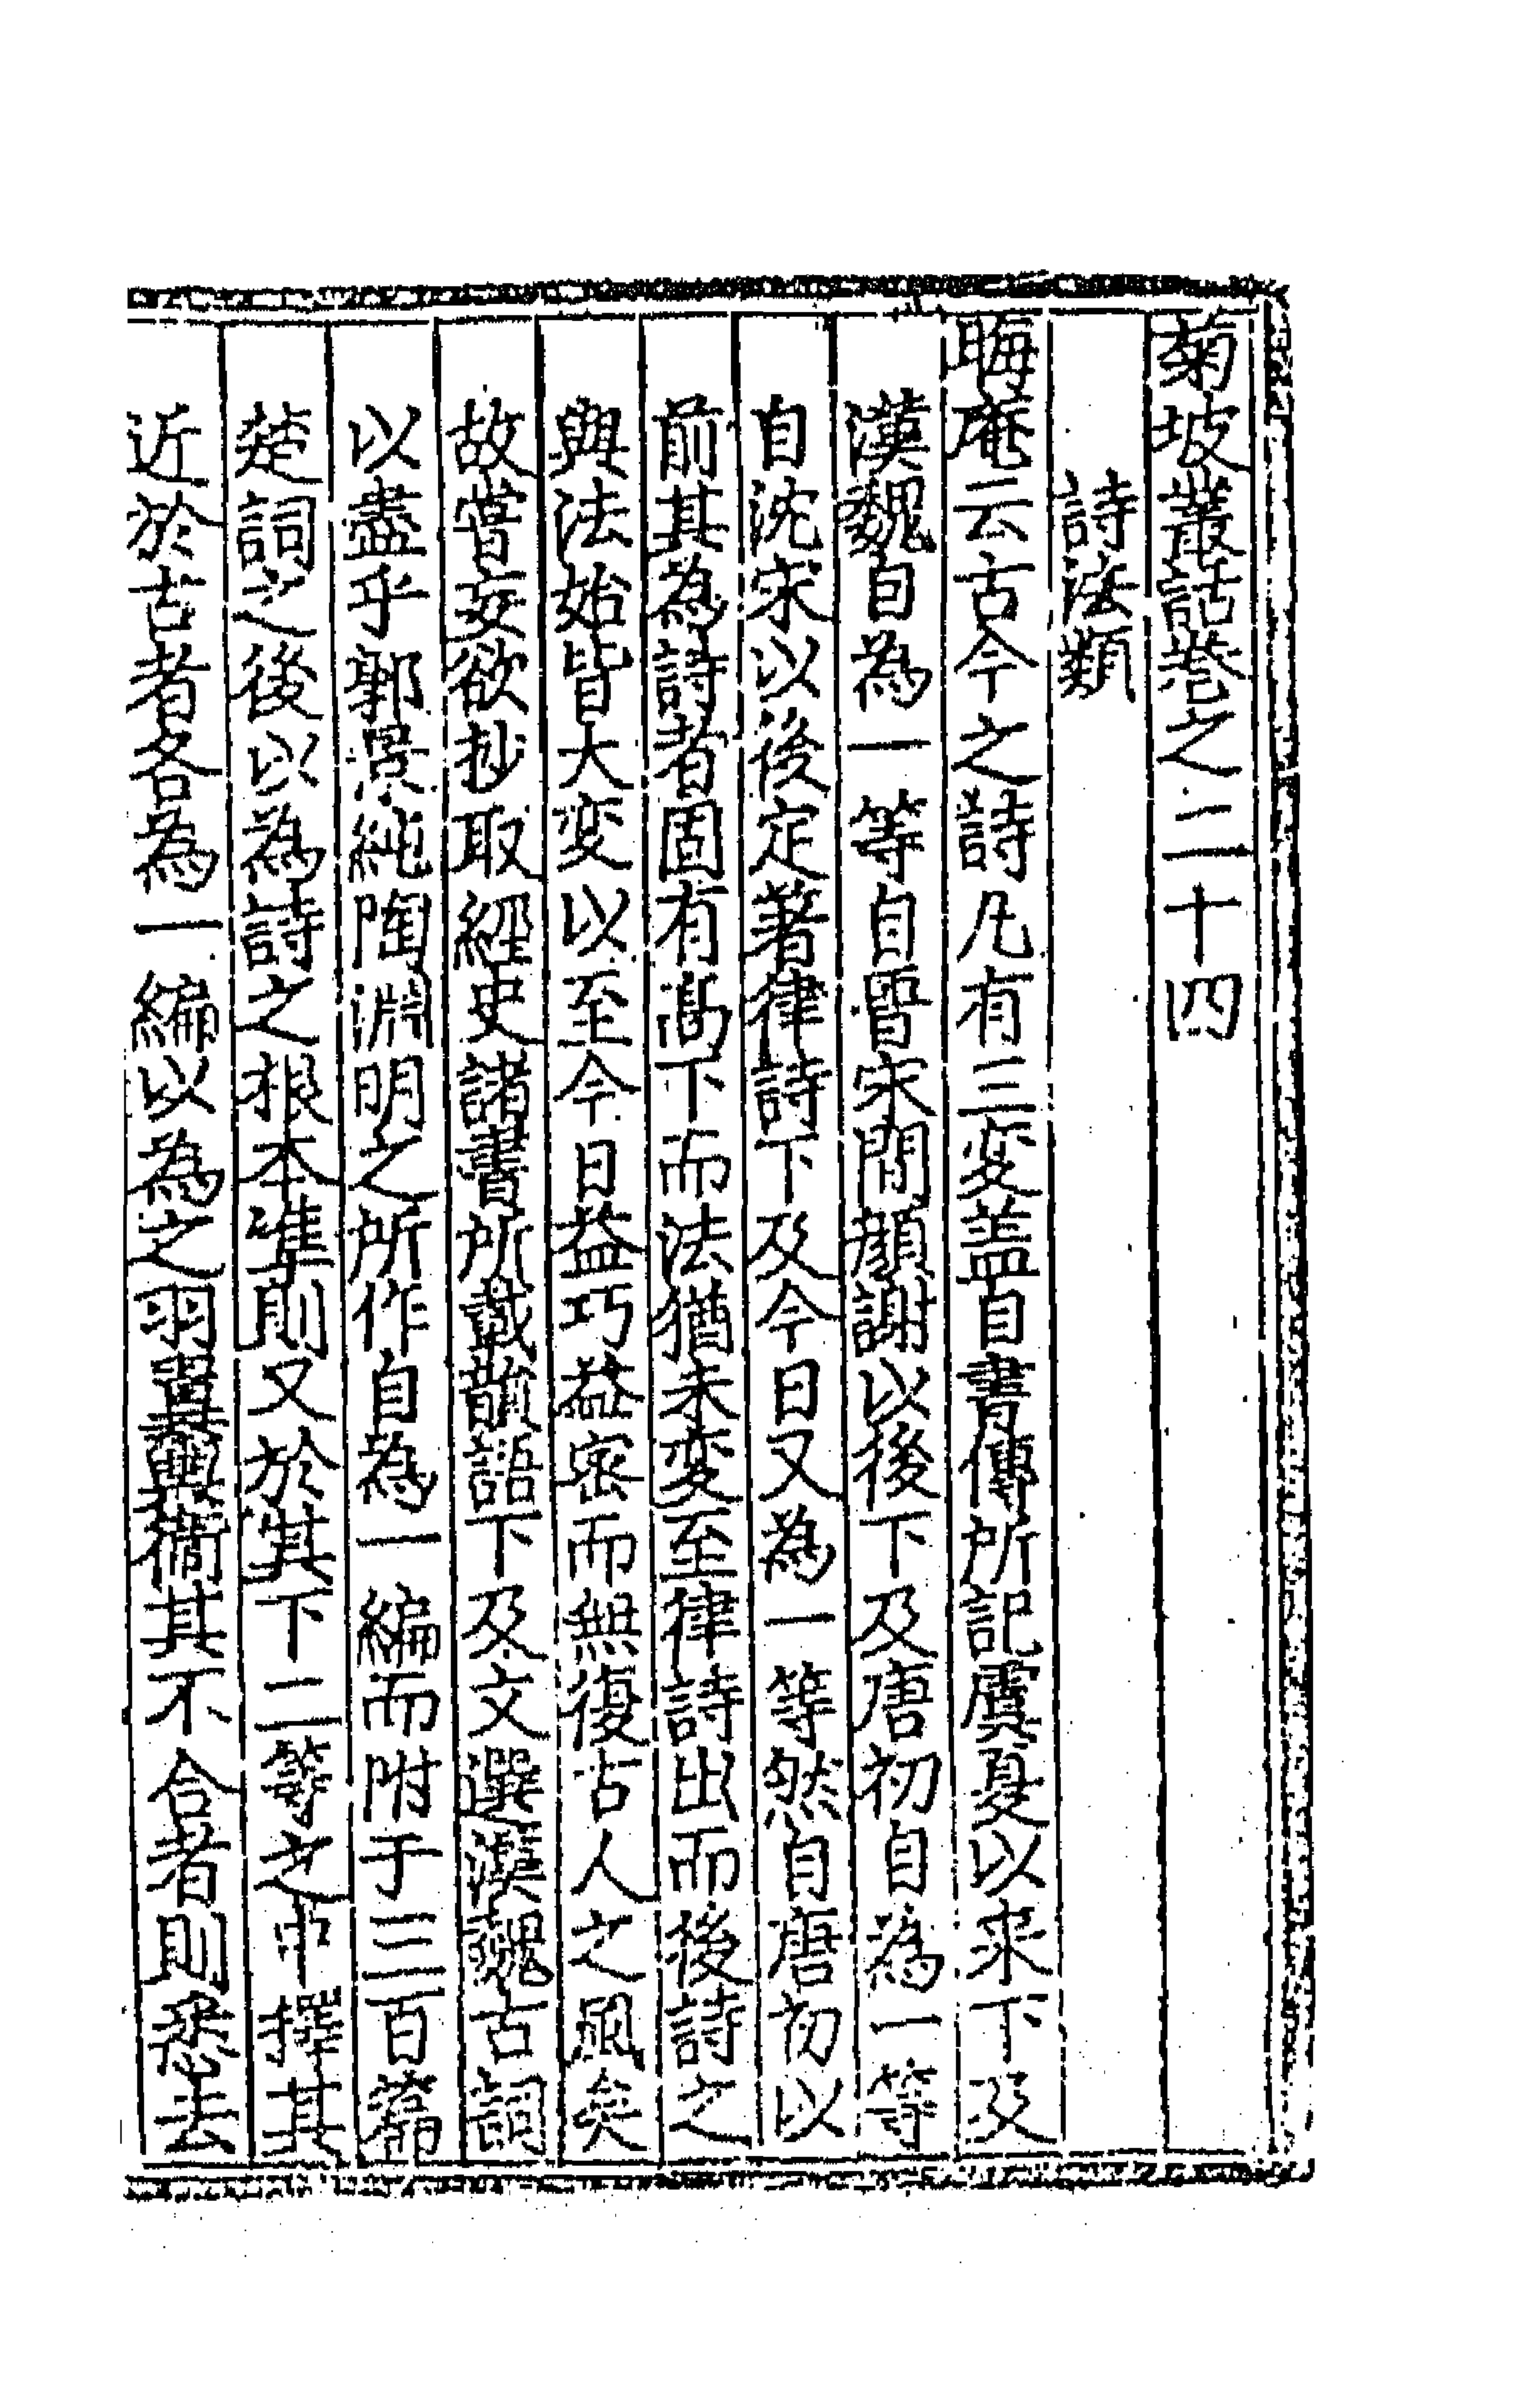 菊坡叢話卷之二十四
詩法類
晦庵云古今之詩凡有三变盖自書傳所記虞夏以来下及
漢魏自為一等自晋宋間顔謝以後下及唐初自為一等
自沈宋以後定著律詩下及今日又為一等然自唐初以
前其為詩者固有高下而法猶未变至律詩出而後詩之
與法始皆大变以至今日益巧益密而無復古人之風矣
故嘗妄欲抄取經史諸書所載韻語下及文選漢魏古詞
以盡乎郭景純陶淵明之所作自為一編而附于三百篇
楚詞之後以為詩之根本準則又於其下二等之中擇其
近於古者各為一編以為之羽翼輿衛其不合者則悉去